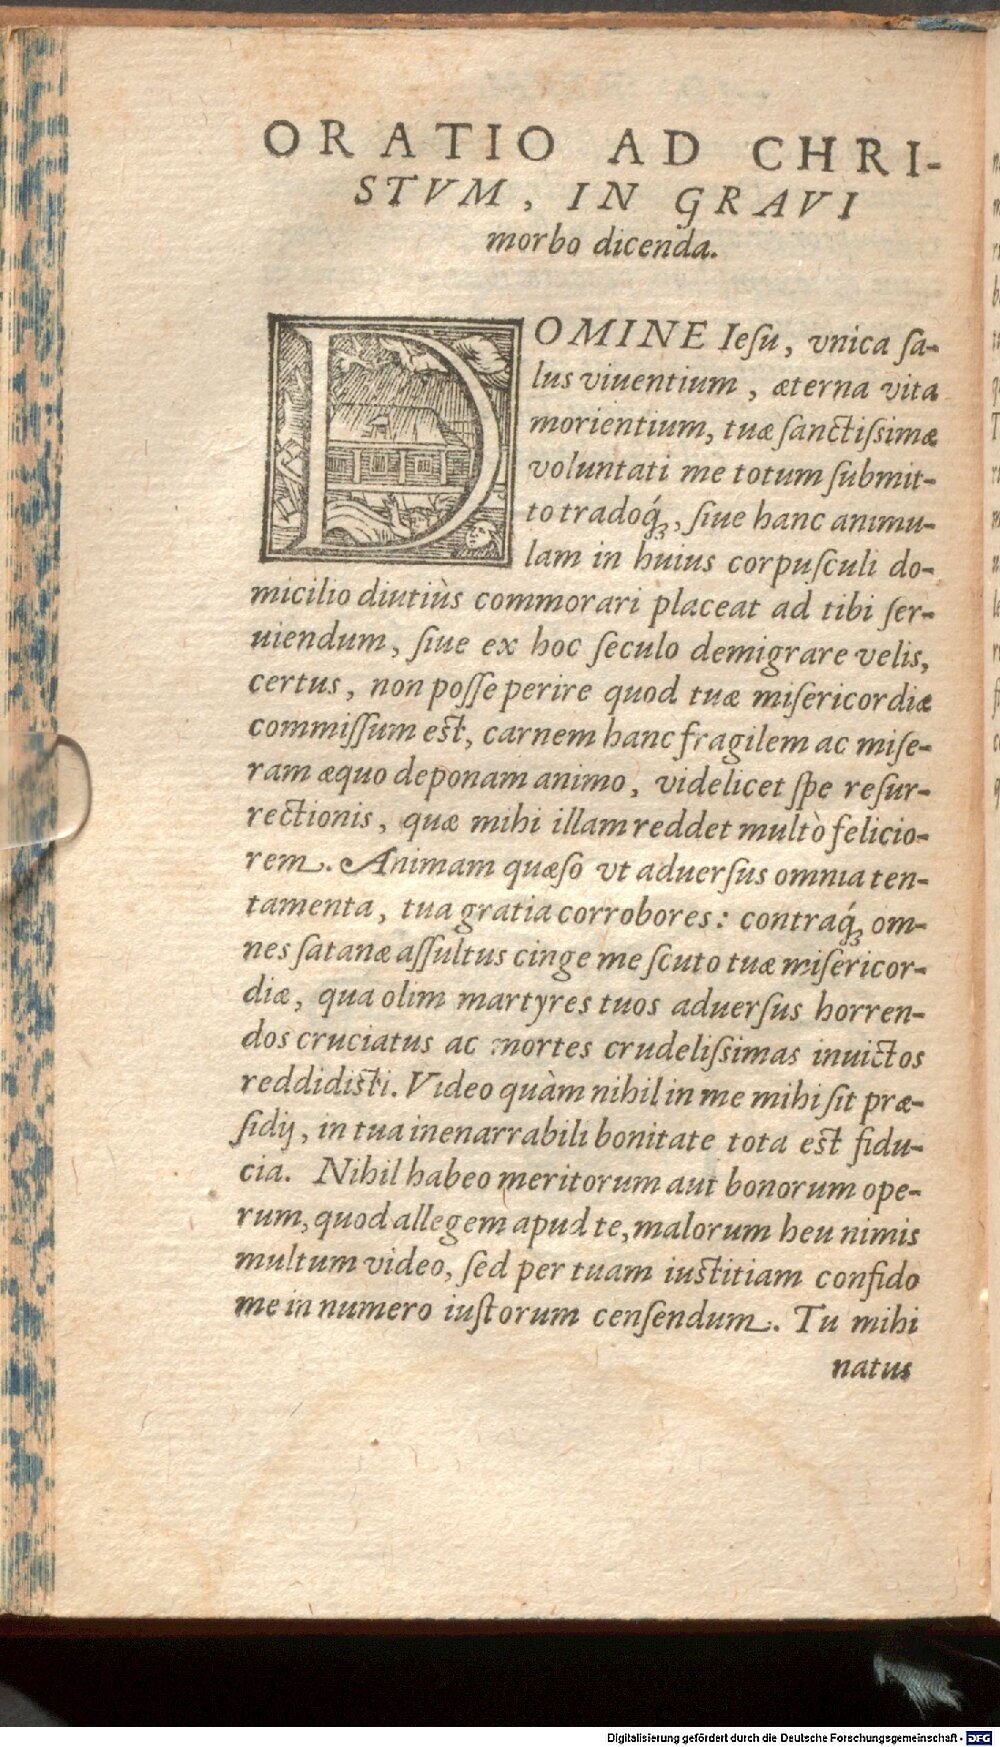 ORATIO AD CHRI-
STVM, IN GRAVI
morbo dicenda.
DOMINE Ieſu, vnica ſa-
lus viuentium, æterna vita
morientium, tuæ ſanctiſsimæ
voluntati me totum ſubmit-
to tradoq́ꝫ, ſiue hanc animu-
lam in huius corpuſculi do-
micilio diutiùs commorari placeat ad tibi ſer-
uiendum, ſiue ex hoc ſeculo demigrare velis,
certus, non poſſe perire quod tuæ miſericordiæ
commiſſum eſt, carnem hanc fragilem ac miſe-
ram æquo deponam animo, videlicet ſpe reſur-
rectionis, quæ mihi illam reddet multò felicio-
rem. Animam quæſo vt aduerſus omnia ten-
tamenta, tua gratia corrobores: contraq́ꝫ om-
nes ſatanæ aſſultus cinge me ſcuto tuæ miſericor-
diæ, qua olim martyres tuos aduerſus horren-
dos cruciatus ac mortes crudeliſsimas inuictos
reddidiſti. Video quàm nihil in me mihi ſit præ-
ſidij, in tua inenarrabili bonitate tota eſt fidu-
cia. Nihil habeo meritorum aut bonorum ope-
rum, quod allegem apud te, malorum heu nimis
multum video, ſed per tuam iuſtitiam confido
me in numero iuſtorum cenſendum. Tu mihi
natus
Digitalisierung gefördert durch die Deutsche Forschungsgemeinschaft - DFG